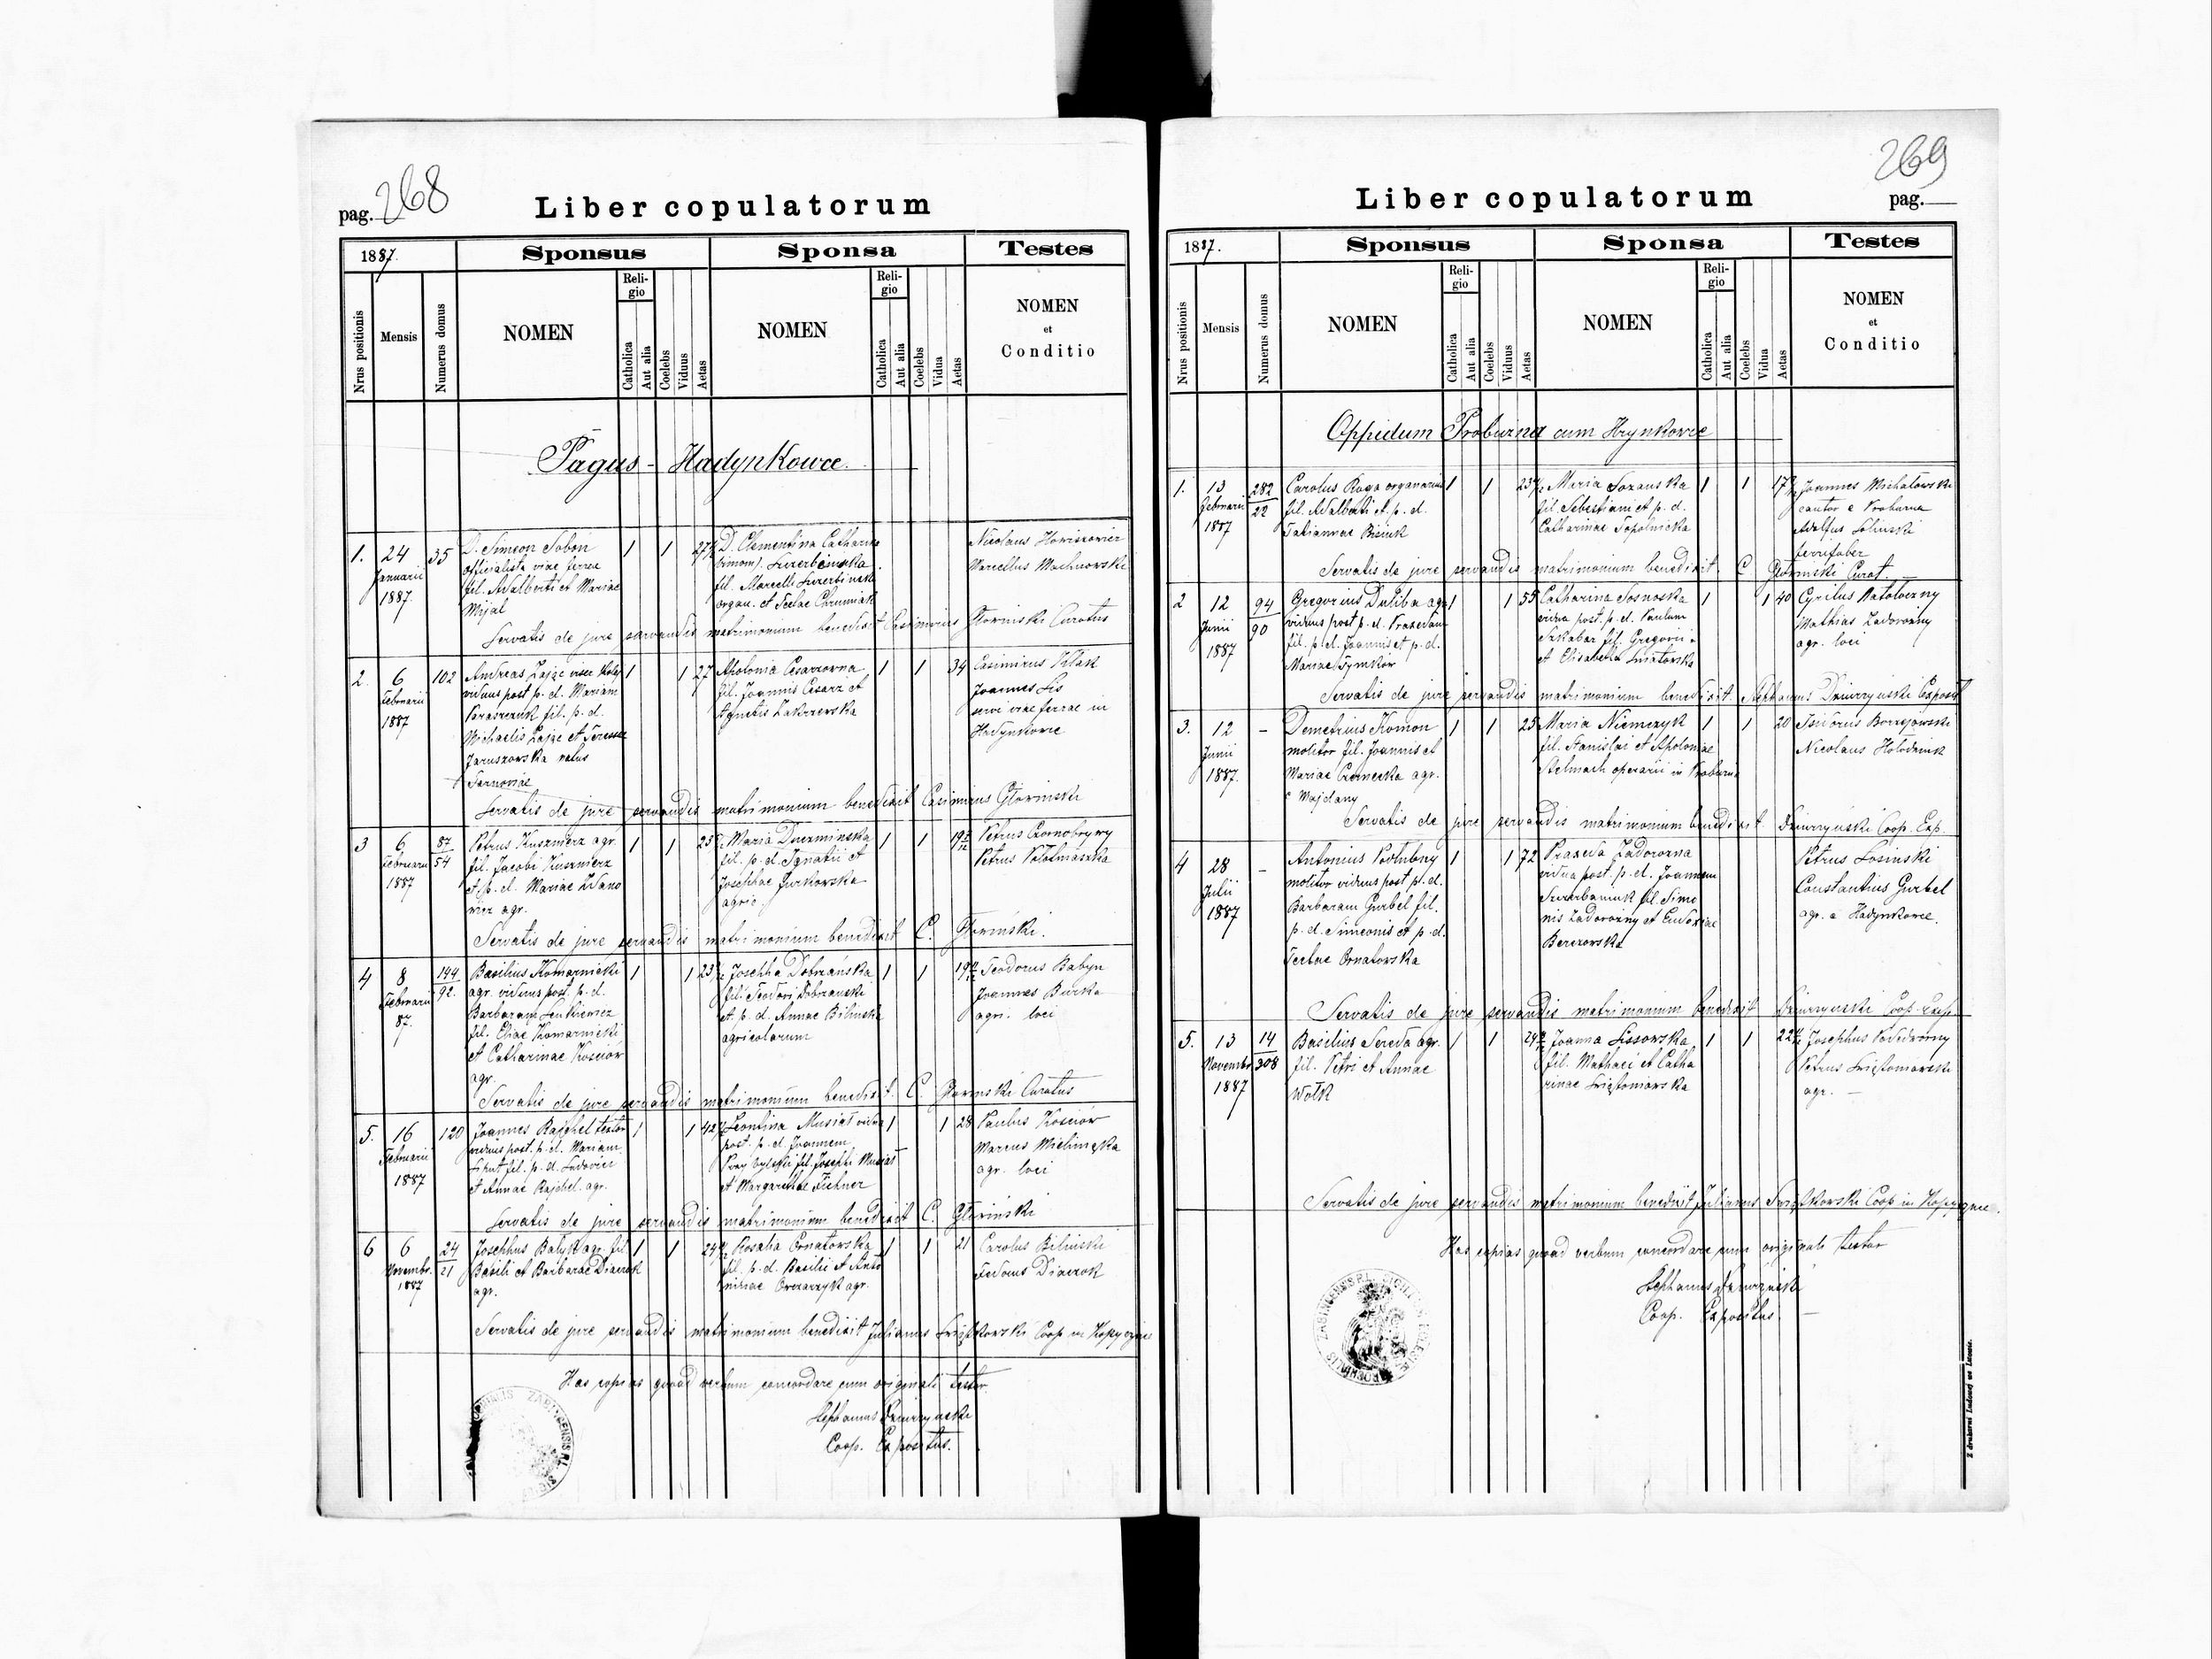 268
pag.
Liber copulatorum
1887.
Sponsus
Sponsa
Testes
Nrus positionis
Mensis
Numerus domus
NOMEN
Religio
Catholica
Aut alia
Coelebs
Viduus
Aetas
NOMEN
Religio
Catholica
Aut alia
Coelebs
Vidua
Aetas
NOMEN
et
Conditio
Pagus - Hadynkowce.
1. 24 Januarii 1887. 35
D. Simeon Soboń
officialista viae ferrae
fil. Adalberti et Mariae
Mijal
1 1 27
D. Clementina Catharina
(binom)
fil. Marcelli
organ. et Teclae Chrumiak
Nicolaus
Marcellus Machnowski
Servatis de jure servandis matrimonium benedixit Casimirus Głowinski Curatus
2. 6 Februarii 1887 102
Andreas Zając
viduus post p. d. Mariam
fil. p. d.
Michaelis Zając et Teressae
Jaruszowska natus
Tarnoviae
1 1 27
Apolonia Cesarzowna
fil. Joannis Cesarz et
Agnetis Zakrzewska
1 1 34
Casimirus Klak
Joannes Lis
servi viae ferrae in
Hadynkowce
Servatis de jure servandis matrimonium benedixit Casimirus Głowinski
3 6 Februarii 1887 87/54
Petrus Kusznierz agr.
fil. Jacobi Kusznierz
et p. d. Mariae Zdano
wicz agr.
1 1 25
Maria Duzminska
fil. p. d. Ignatii et
Josephae Jurkowska
agric.
1 1 19
Petrus Czornobrywy
Petrus
Servatis de jure servandis matrimonium benedixit C. Głowiński.
4 8 Februarii 87. 194/92.
Basilius Komarnicki
agr. viduus post. p. d.
Barbaram Senkiewicz
fil. Eliae Komarnicki
et Catharinae Kościów
agr.
1 1 23
Josepha Dobrzańska
fil. Teodori Dobrzanski
et. p. d. Annae Bilinska
agricolarum
1 1 19
Teodorus Babyn
Joannes Burka
agr. loci
Servatis de jure servandis matrimonium benedixit C. Głowinski Curatus
5. 16 Februarii 1887 120
Joannes Rajchel textor
viduus post. p. d. Mariam
fil. p. d. Ludovici
et Annae Rajchel. agr.
1 1 42
Leontina Musiał vidua
post. p. d. Joannem
fil. Josephi Musiał
et Margarethae Fichner
1 1 28
Paulus Kościów
Marcus
agr. loci
Servatis de jure servandis matrimonium benedixit C. Głowiński
6 6 Novembr. 1887 24/21
Josephus Batyk agr. fil.
Basili et Barbarae Diaczok
agr.
1 1 24
Rosalia Ornatowska
fil. p. d. Basilii et Anto
ninae Owczarzyk agr.
1 1 21
Carolus Bilinski
Fedorus Diaczok
Servatis de jure servandis matrimonium benedixit Julianus Świstkowski Coop in
Has copias quoad verbum concordare cum originali testor.
Stephanus Dziurzynski
Coop. Expositus.
269
Liber copulatorum
pag.
1887.
Sponsus
Sponsa
Testes
Nrus positionis
Mensis
Numerus domus
NOMEN
Religio
Catholica
Aut alia
Coelebs
Viduus
Aetas
NOMEN
Religio
Catholica
Aut alia
Coelebs
Vidua
Aetas
NOMEN
et
Conditio
Oppidum Probuzna cum Hrynkowce
1. 13 Februarii 1887 282/22
Carolus Ruga organarius
fil. Adalberti et. p. d.
Tatiannae
1 1 23
Maria Sozanska
fil. Sebestiani et p. d.
Catharinae Topolnicka
1 1 17
Joannes Michałowski
cantor e Probuzna
Adolfus Solinski
ferrifaber
Servatis de jure servandis matrimonium benedixit. C Głowinski Curat.
2 12 Junii 1887 94/90
Gregorius Duliba agr.
viduus post p. d. Praxedam
fil. p. d. Joannis et p. d.
Mariae Tymkow
1 1 55
Catharina Sosnoska
vidua post. p. d. Paulum
Szkabar fil. Gregorii
et Elisabetha
1 1 40
Cyrilus
Mathias Zadorożny
agr. loci
Servatis de jure servandis matrimonium benedixit. Stephanus Dziurzynski Exposit
3. 12 Junii 1887. -
Demetrius Komon
molitor fil. Joannis et
Mariae Czernecka agr.
e Majdany
1 1 25
Maria Niemczyk
fil. Stanislai et Apoloniae
Stelmach operarii in Probuzna
1 1 20
Isidorus
Nicolaus Hołodniuk
Servatis de jure servandis matrimonium benedixit Dziurzyński Coop. Exp.
4 28 Julii 1887 -
Antonius Podłubny
molitor viduus post p. d.
Barbaram Gurbel fil.
p. d. Simeonis et p. d.
Teclae Ornatowska
1 1 72
Praxeda Zadorozna
vidua post. p. d. Joannem
fil. Simeo
nis Zadorozny et Eudoxiae
Berezowska
Petrus Łosinski
Constantius Gurbel
agr. a Hadynkowce.
Servatis de jure servandis matrimonium benedixit Dziurzynski Coop. Exp.
5. 13 Novembr 1887 14/308
Basilius Sereda agr.
fil. Petri et Annae
Wołk
1 1 24
Joanna Lissowska
fil. Mathaei et Catha
rinae Swiętoniowska
1 1 22
Josephus Podedworny
Petrus Swiętoniowski
agr.
Servatis de jure servandis matrimonium benedixit Julianus Świstkowski Coop in
Has copias quoad verbum concordare cum originali testor
Stephanus Dziurzynski
Coop. Expositus.
Z drukarni Ludowej we Lwowie.